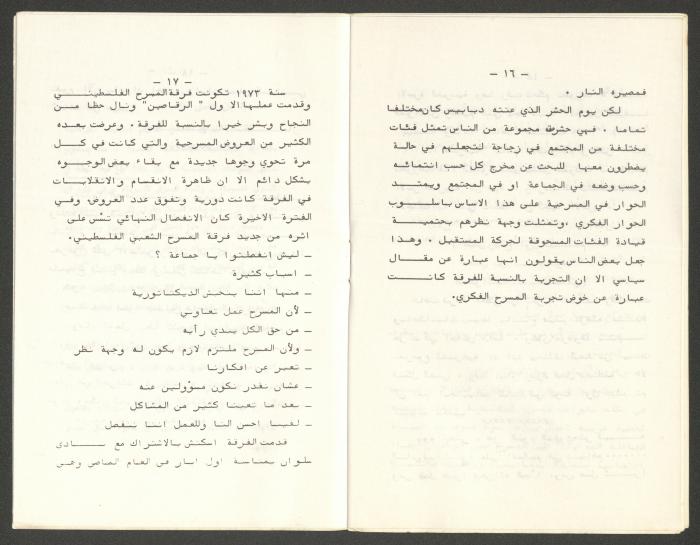 - ١٦ -
فمصيره النار .
لكن يوم الحشر الذي عنته دبابيس كان مختلفا
تماما . فهي حشرت مجموعة من الناس تمثل فئات
مختلفة من المجتمع في زجاجة لتجعلهم في حالة
يضطرون معها للبحث عن مخرج كل حسب انتمائه
وحسب وضعه في الجماعة او في المجتمع ويمتد
الحوار في المسرحية على هذا الاساس باسلوب
الحوار الفكري ، وتمثلت وجهة نظرهم بحتمية
قيادة الفئات المسحوقة لحركة المستقبل . وهذا
جعل بعض الناس يقولون انها عبارة عن مقال
سياسي الا ان التجربة بالنسبة للفرقة كانت
عبارة عن خوض تجربة المسرح الفكري.
- ١٧ -
سنة ١٩٧٣ تكونت فرقة المسرح الفلسطيني
وقدمت عملها الاول " الرقاصين" ونال حظا من
النجاح وبشر خيرا بالنسبة للفرقة . وعرضت بعده
الكثير من العروض المسرحية والتي كانت في كل
مرة تحوي وجوها جديدة مع بقاء بعض الوجوه
بشكل دائم الا ان ظاهرة الانقسام والانقلابات
في الفرقة كانت دورية وتفوق عدد العروض. وفي
الفترة الاخيرة كان الانفصال النهائي تشس على
اثره من جديد فرقة المسرح الشعبي الفلسطيني.
- ليش انفصلتوا يا جماعة ؟
- اسباب كثيرة
- منها اننا بنحش الديكتاتورية
- لأن المسرح عمل تعاوني
- من حق الكل يبدي رأيه
- ولأن المسرح ملتزم لازم يكون له وجهة نظر
- تعبر عن افكارنا
- عشان نقدر نكون مسؤولين عنه
- بعد ما تعبنا كثير من المشاكل
- لقينا احسن النا وللعمل اننا ننفصل
قدمت الفرقة اسكتش بالاشتراك مع نادي
سلوان بمناسبة اول ايار في العام الماضي وهي